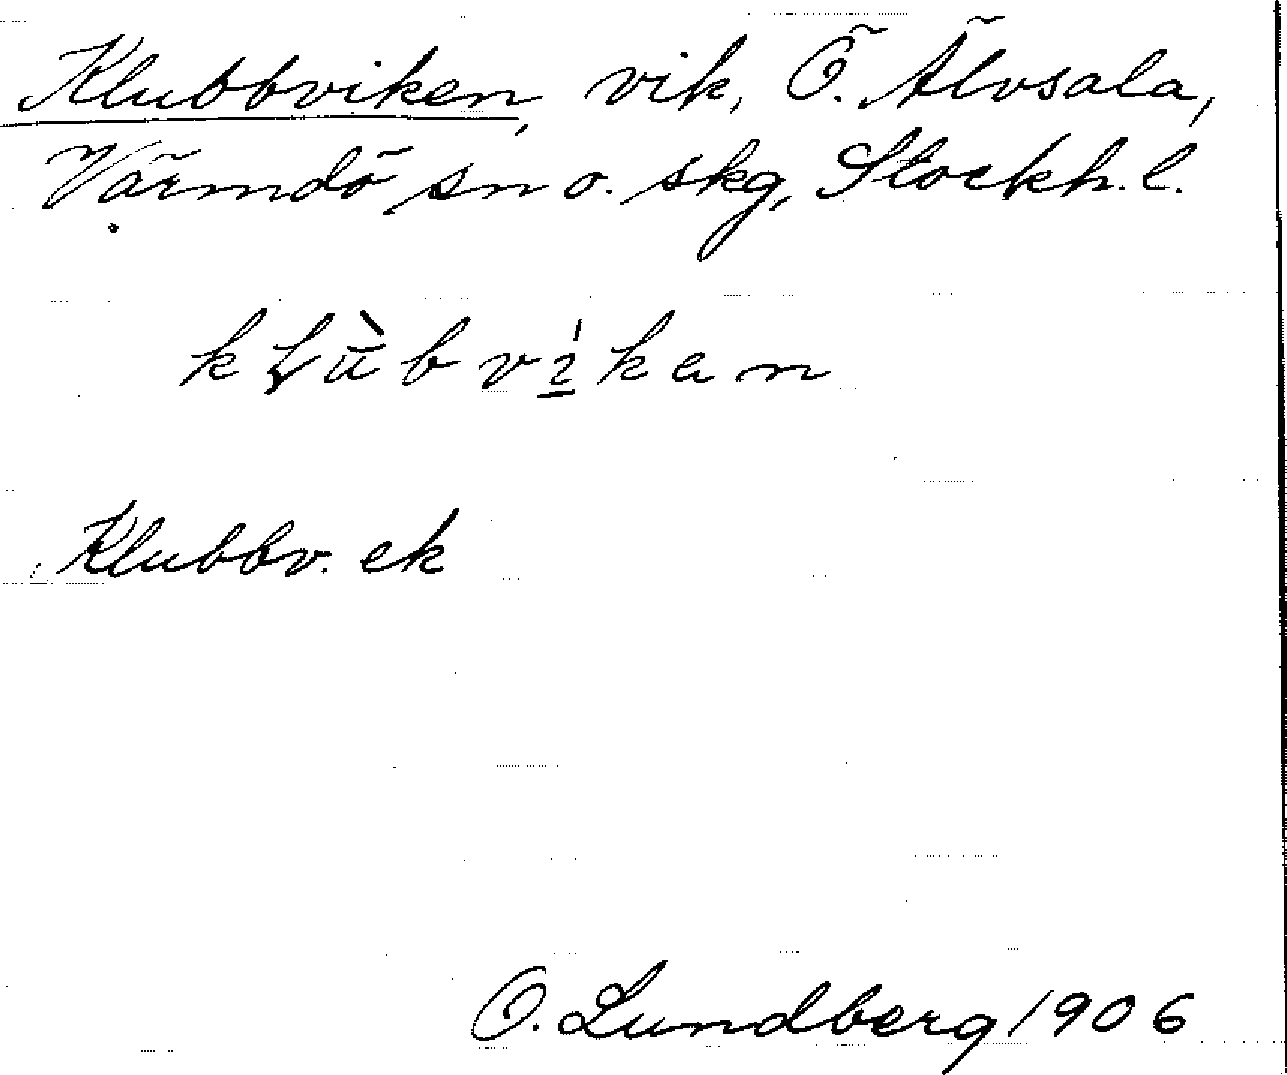 Klubbviken, vik, Ö. Älvsala,
Värmdö sn o. skg, Stockh. l.
kl̬ùbví̱kan
Klubbv. ek
O. Lundberg 1906